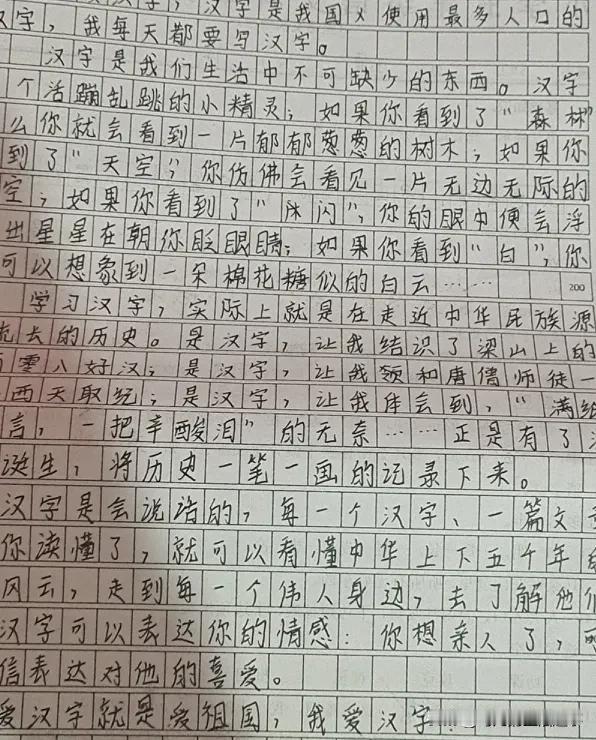 汉字，汉字是我国人使用最多人口的
汉字，我每天都要写汉字。
汉字是我们生活中不可缺少的东西。汉字
个活蹦乱跳的小精灵；如果你看到了“森林”
么你就会看到一片郁郁葱葱的树木；如果你
到了“天空”，你仿佛会看见一片无边无际的
空；如果你看到了“闪”，你的眼中便会浮
出星星在朝你眨眼睛；如果你看到“白”，你
可以想象到一朵棉花糖似的白云……
200
学习汉字，实际上就是在走近中华民族源
流长的历史。是汉字，让我结识了梁山上的
百零八好汉；是汉字，让我领和唐僧师徒一
西天取经；是汉字，让我体会到，“满纸
言，一把辛酸泪”的无奈……正是有了
诞生，将历史一笔一画的记录下来。
汉字是会说话的，每一个汉字、一篇文
你读懂了，就可以看懂中华上下五千年
风云，走到每一个伟人身边，去了解他们
汉字可以表达你的情感：你想亲人了，可
信表达对他的喜爱。
爱汉字就是爱祖国，我爱汉字